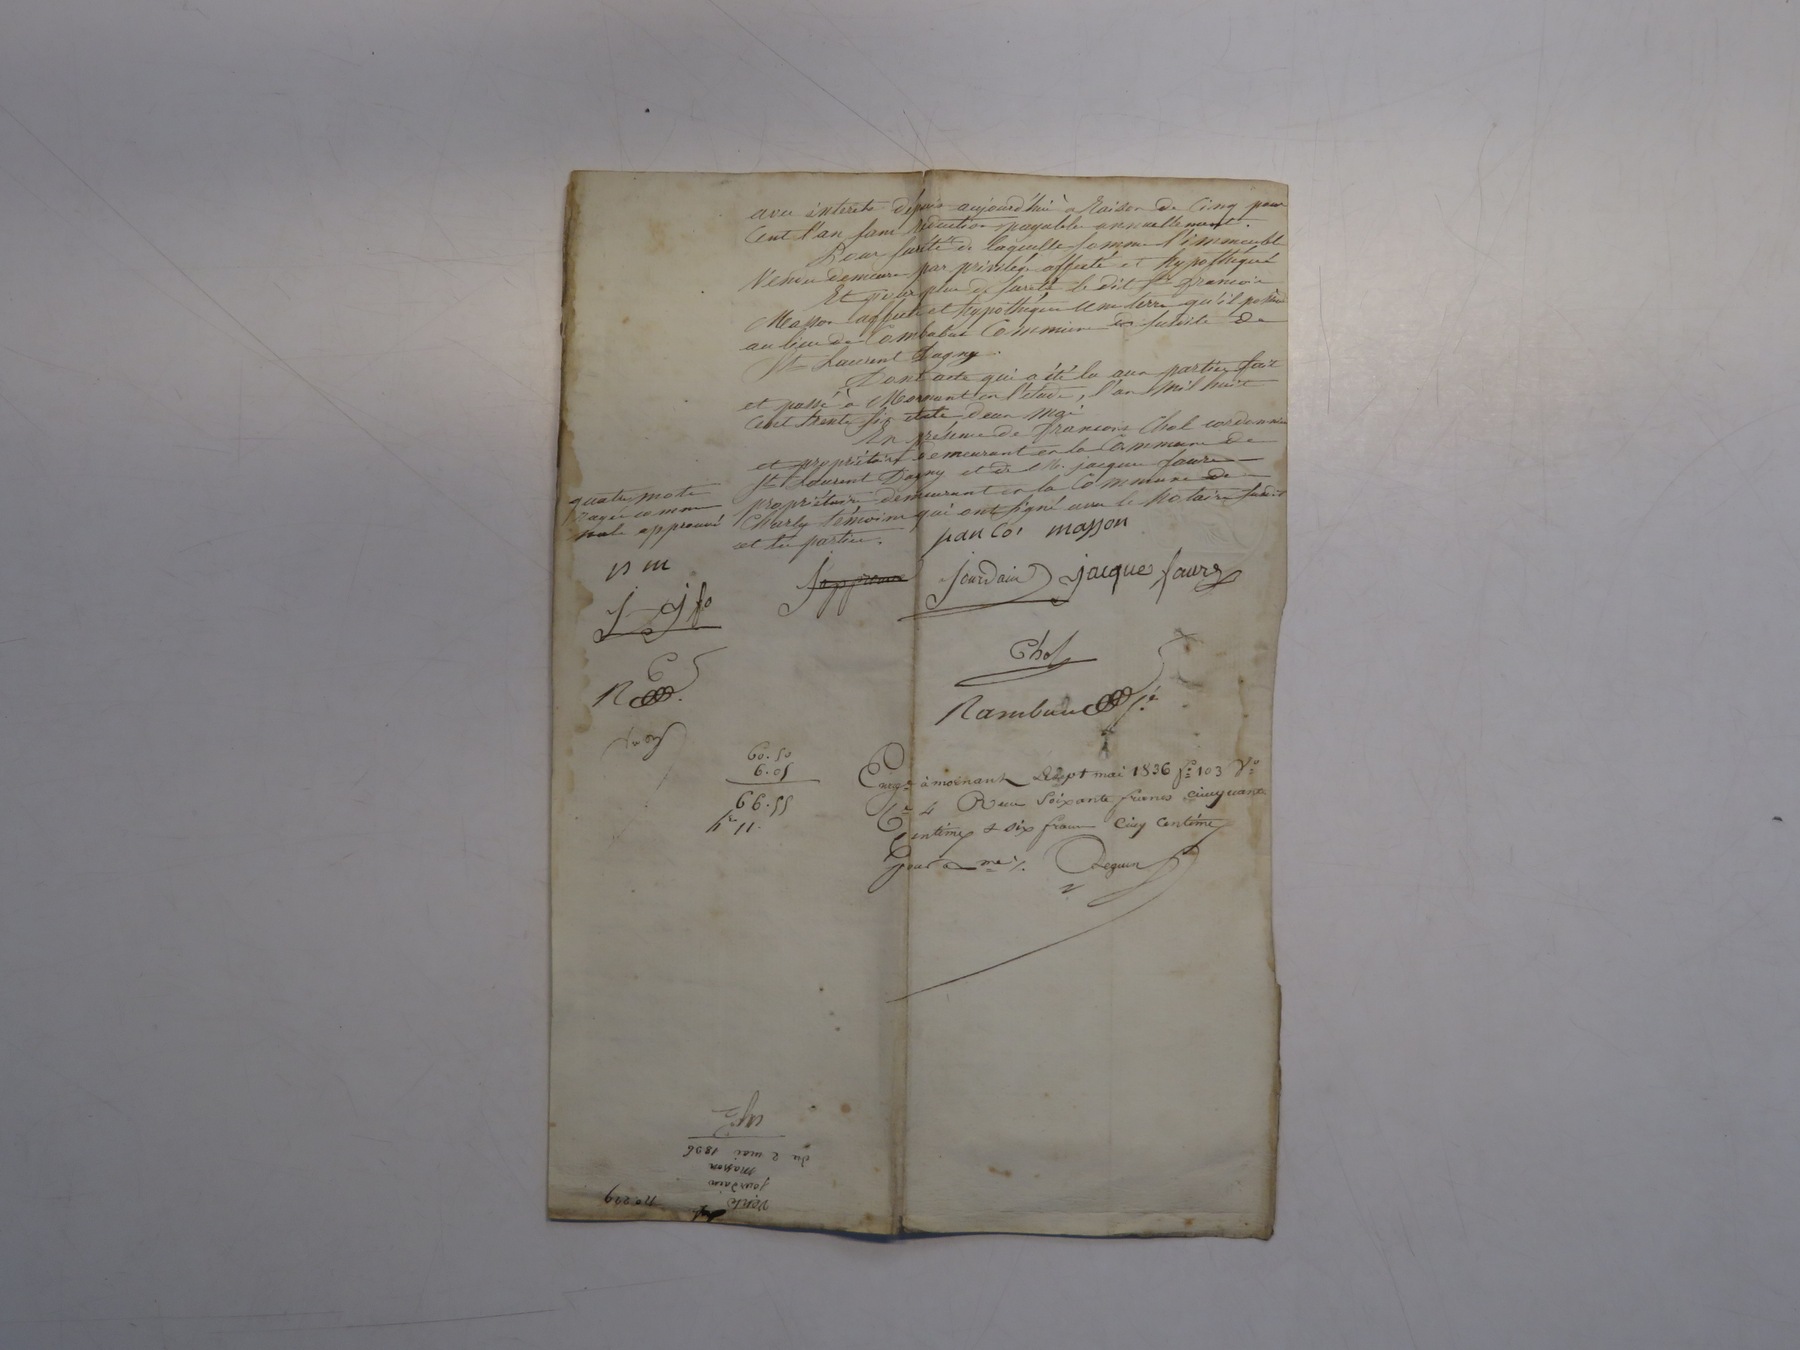 avec interets depuis aujourd'hui à Raison de Cinq pour
Cent l'an sans Réduction payable annuellement.
Pour sureté de laquelle somme l'immeuble
Vendu demeure par privilége affecté et hypothéqué
Et pour plus de sureté le dit Sr françois
Masson affecte et hypothéque une terre qu'il possède
au lieu de Combabut Commune de
St Laurent Dagny.
Dont acte qui a été lu aux parties fait
et passé à Mornant en l'étude, l'an Mil huit
Cent trente six et le deux mai
En présence de françois Chol cordonnier
et propriétaire demeurant en la Commune de
St Laurent Dagny et de Mr. jacque faure
propriétaire demeurant en la Commune de
Charly témoins qui ont signé avec le Notaire susdit
et les parties.
quatre mots
Rayés comme
nuls approuvés
fran coi masson
jourdain jacque faure
J fo
Chol
R
Rambau
60.50
6.05
66.55
11.
Enregé à mornant le sept mai 1836 fo 103 Vo
Ce 4 Reçu Soixante francs cinquante
Centimes & six francs cinq centimes
pour Xme %. Deguin
No 229
Vente
jourdain
masson
du 2 mai 1836